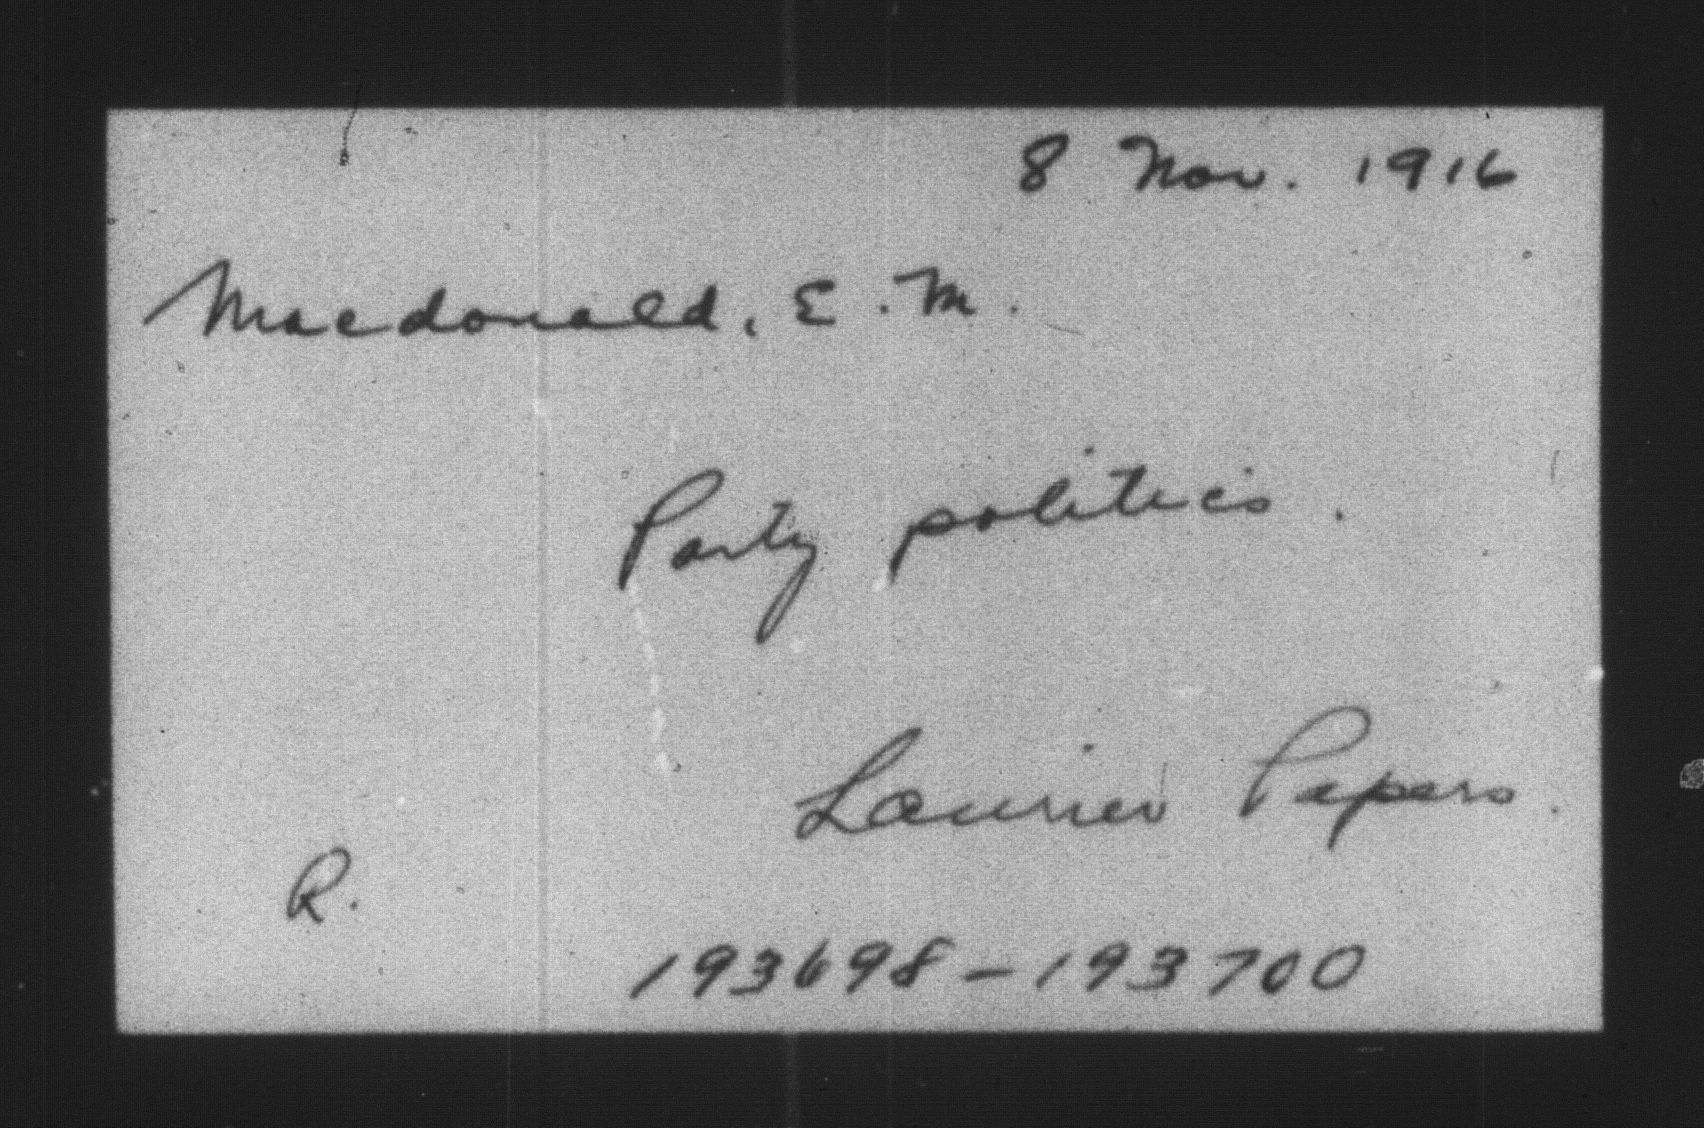 8 Nov. 1916
Macdonald, E. M.
Party politics.
Laurier Papers.
R.
193698-193700